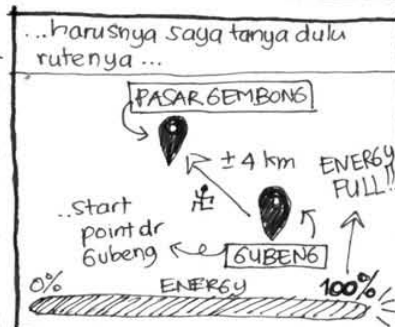 ...harusnya saya tanya dulu
rutenya ...
PASAR GEMBONG
± 4 km
ENERGY
FULL!!
..start
point dr
Gubeng
GUBENG
0%
ENERGY
100%